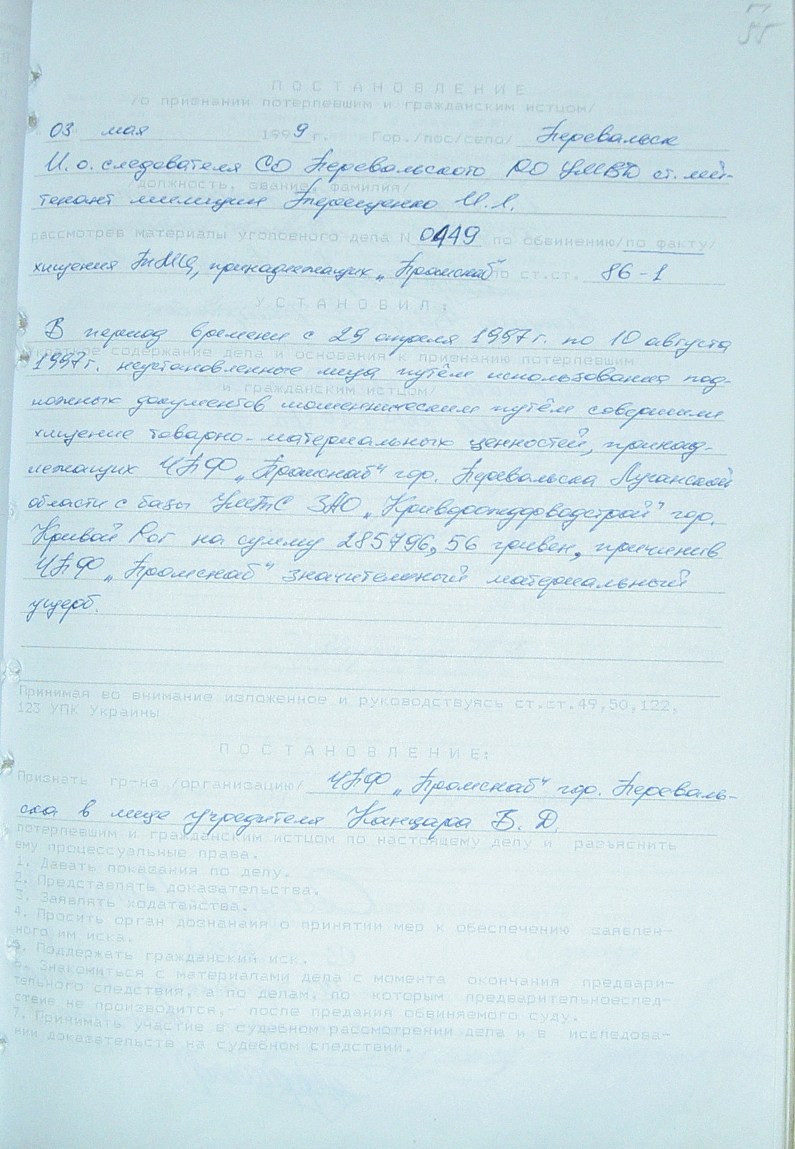 55
ПОСТАНОВЛЕНИЕ
/о признании потерпевшим и гражданским истцом/
03 мая 1999 г. Гор./пос/село/ Перевальск
И. о. следователя СО Перевальского РО УМВД ст. лей-
/должность, звание, фамилия/
тенант милиции Терещенко И.Л.
рассмотрев материалы уголовного дела N 0449 по обвинению/по факту/
хищения ТМЦ, принадлежащих „Промснаб" по ст.ст. 86-1
УСТАНОВИЛ:
В период времени с 29 апреля 1997 г. по 10 августа
содержание дела и основания к признанию потерпевшим
1997г. неустановленные лица путём использования под-
и гражданским истцом/
ложных документов мошенническим путём совершили
хищение товарно-материальных ценностей, принад-
лежащих ЧПФ „Промснаб" гор. Перевальска Луганской
области с базы УМТС ЗАО гор.
Кривой Рог на сумму 285796,56 гривен, причинив
ЧПФ „Промснаб" значительный материальный
ущерб.
Принимая во внимание изложенное и руководствуясь ст.ст.49,50,122,
123 УПК Украины
ПОСТАНОВЛЕНИЕ:
Признать гр-на /организацию/ ЧПФ „Промснаб" гор. Переваль-
ска в лице учредителя В. Д.
потерпевшим и гражданским истцом по настоящему делу и разъяснить
ему процессуальные права.
1. Давать показания по делу.
2. Представлять доказательства.
3. Заявлять ходатайства.
4. Просить орган дознанамо о принятии мер к обеспечению заявлен-
ного им иска.
5. Поддержать гражданский иск.
6. Знакомиться с материалами дела с момента окончания предвари-
тельного следствия, а по делам, по которым предварительноеслед-
ствие не производится,- после предания обвиняемого суду.
7. Принимать участие в судебном рассмотрении дела и в исследова-
нии доказательств на судебном следствии.